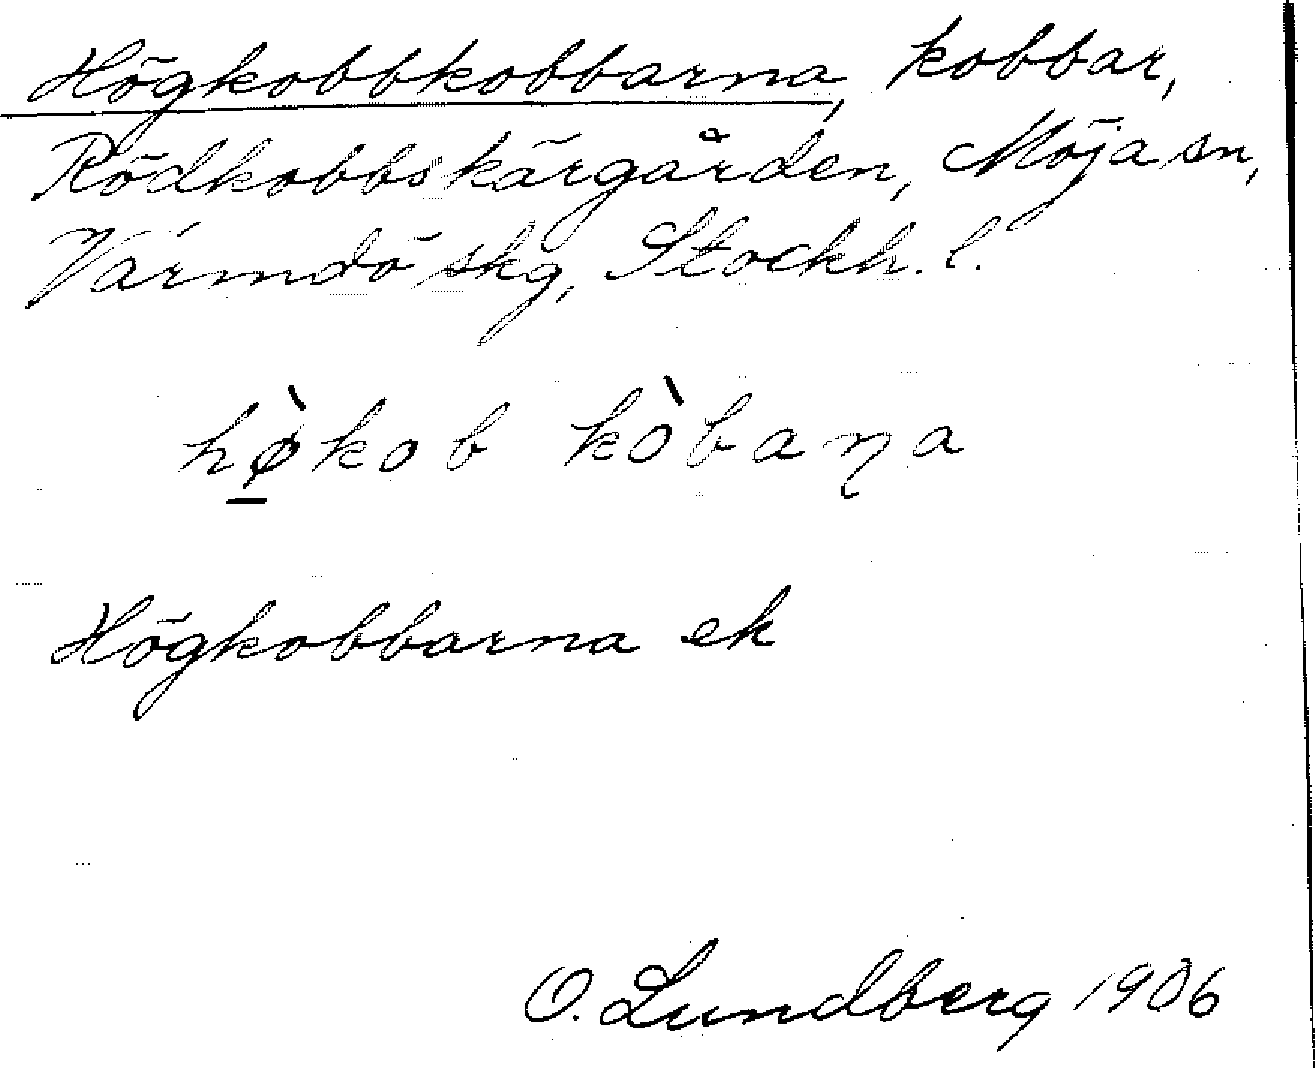 Högkobbkobbarna, kobbar,
Rödkobbskärgården, Möja sn,
Värmdö skg, Stockh. l.
hø̱̀kob kòbaɳa
Högkobbarna ek
O. Lundberg 1906